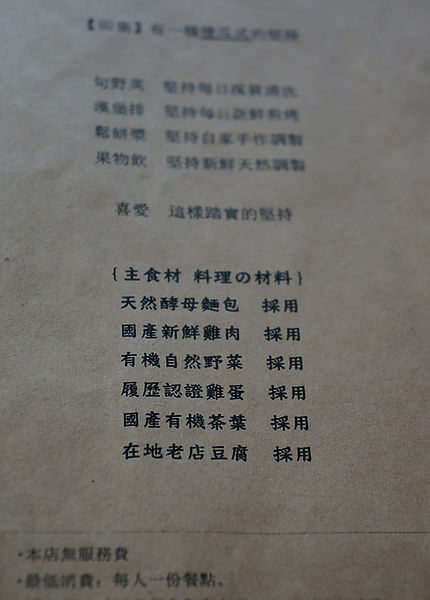 有一種 的堅持
旬野菜 堅持每日採買清洗
漢堡排 堅持每日新鮮煎烤
鬆餅漿 堅持自家手作調製
果物飲 堅持新鮮天然調製
喜愛 這樣踏實的堅持
{主食材 料理の材料}
天然酵母麵包 採用
國產新鮮雞肉 採用
有機自然野菜 採用
履歷認證雞蛋 採用
國產有機茶葉 採用
在地老店豆腐 採用
·本店無服務費
·最低消費：每人一份餐點。